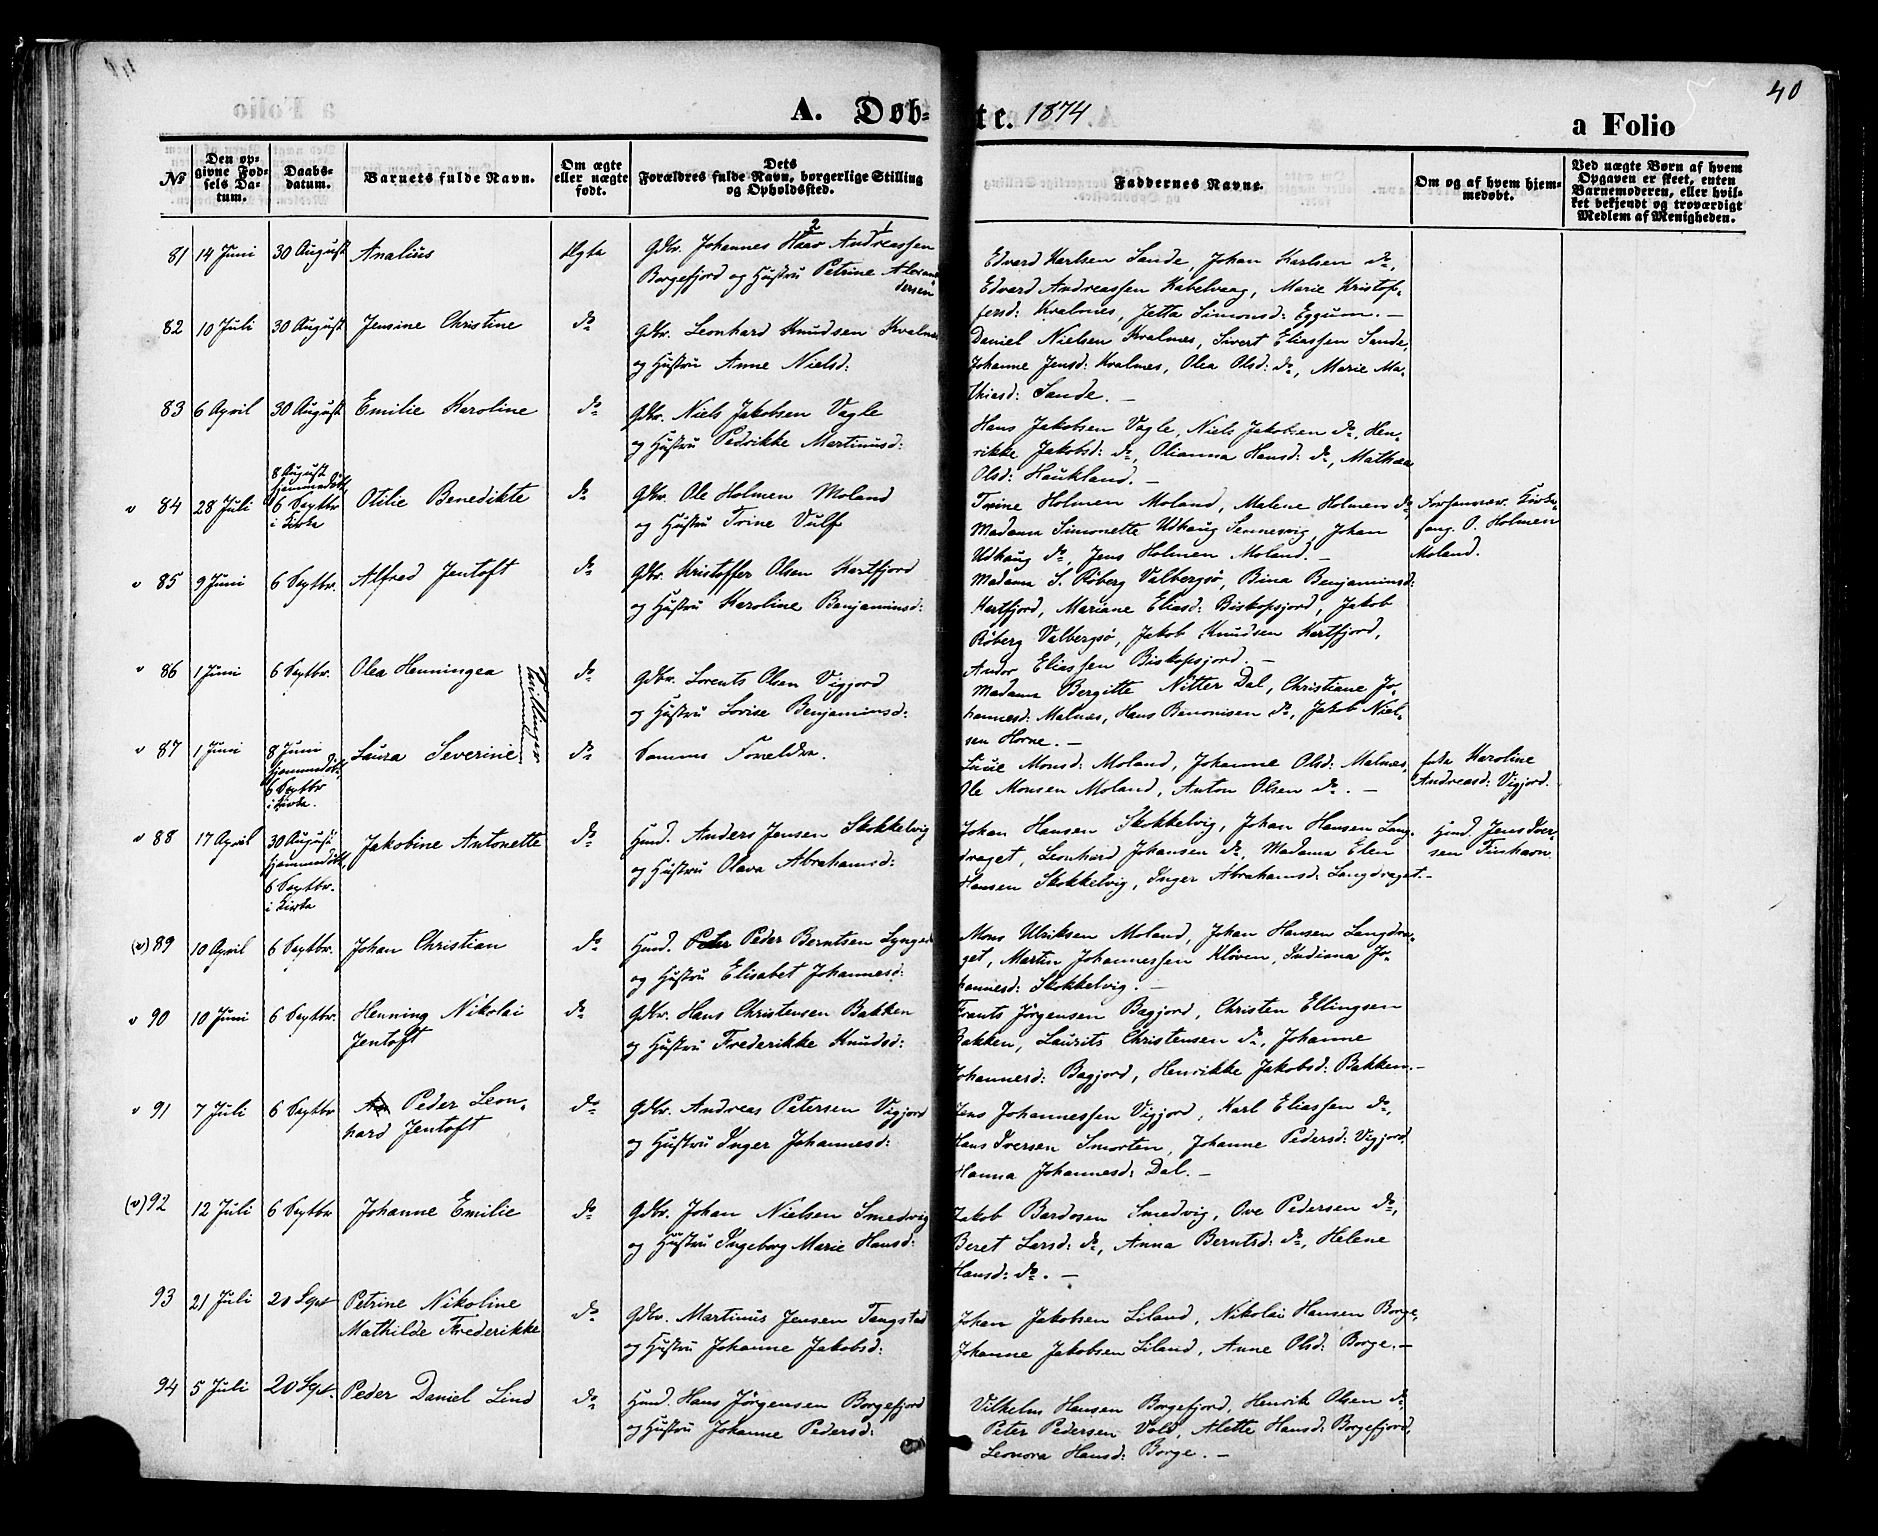 40
A. Døb-te. 1874
a Folio
No
Den op-
givne Fød-
sels Da-
tum.
Daabs-
datum.
Barnets fulde Navn.
Om ægte
eller uægte
født.
Dets
Forældres fulde Navn, borgerlige Stilling
og Opholdssted.
Faddernes Navne.
Om og af hvem hjem-
medøbt.
Ved uægte Børn af hvem
Opgaven er skeet, enten
Barnemoderen, eller hvil-
ket bekjendt og troværdigt
Medlem af Menigheden.
81 14 Juni 30 August Analius Ægte
Gdbr. Johannes Haar Andreassen
Borgefjord og Hustru Petrine Alexan
dersen
Edvard Karlsen Sande, Johan Karlsen do,
Edvard Andreassen Kabelvaag, Marie Kristof-
fersd: Kvalnes, Jetta Simonsd: Eggum. –
82 10 Juli 30 August Jensine Christine do
Gdbr. Leonhard Knudsen Kvalnæs
og Hustru Anne Nielsd:
Daniel Nielsen Kvalnes, Sivert Eliassen Sande,
Johanne Jensd: Kvalnes, Olea Olsd: do, Marie Ma-
thiasd: Sande. –
83 6 April 30 August Emilie Karoline do
Gdbr. Niels Jakobsen Vagle
og Hustru Pedrikke Martinusd:
Hans Jakobsen Vagle, Niels Jakobsen do, Hen-
rikke Jakobsd: do, Olianna Hansd: do, Mathea
Olsd: Haukland. –
v 84 28 Juli
8 August
hjemmedøbt
6 Septbr
i Kirke
Otilie Benedikte do
Gdbr. Ole Holmen Moland
og Hustru Trine Vulf
Trine Holmen Moland, Malene Holmen do,
Madama Simonette Udhaug Sennesvig, Johan
Udhaug do, Jens Holmen Moland. –
Forhenvær. Kirke-
sang. O. Holmen
Moland.
v 85 9 Juni 6 Septbr. Alfred Jentoft do
Gdbr. Kristoffer Olsen Kartfjord
og Hustru Karoline Benjaminsd:
Madama S. Røberg Valbergsø, Bina Benjaminsd:
Kartfjord, Mariane Eliasd: Biskopsjord, Jakob
Røberg Valbergsø, Jakob Knudsen Kartfjord,
Andor Eliassen Biskopsjord. –
v 86 1 Juni 6 Septbr. Olea Henningea do
Tvillinger
Gdbr. Lorents Olsen Vigjord
og Hustru Lovise Benjaminsd:
Madama Bergitte Nitter Dal, Christiane Jo-
hannesd: Malnæs, Hans Benonisen do, Jakob Niel-
sen Horne. –
v 87 1 Juni
8 Juni
hjemmedøbt
6 Septbr
i Kirke.
Laura Severine do
Samme Forældre.
Lucie Monsd: Moland, Johanne Olsd: Malnæs,
Ole Monsen Moland, Anton Olsen do. –
Karoline
Andreasd: Vigjord.
v 88 17 April
30 August
hjemmedøbt,
6 Septbr.
i Kirke
Jakobine Antonette do
Hmd. Anders Jensen Stokkelvig
og Hustru Olava Abrahamsd:
Johan Hansen Stokkelvig, Johan Hansen Lang-
draget, Leonhard Johansen do, Madama Elen
Hansen Stokkelvig, Inger Abrahamsd: Langdraget. –
Hmd. Jens Iver-
sen Finhavn
(v) 89 10 April 6 Septbr. Johan Christian do
Hmd. Peter Peder Berntsen Lynged
og Hustru Elisabet Johannesd:
Mons Ulriksen Moland, Johan Hansen Langdra-
get, Martin Johannessen Kløven, Indiana Jo-
hannesd: Stokkelvig. –
v 90 10 Juni 6 Septbr. Henning Nikolai
Jentoft
do
Gdbr. Hans Christensen Bakken
og Hustru Frederikke Knudsd:
Frants Jørgensen Bagjord, Christen Ellingsen
Bakken, Laurits Christensen do, Johanne
Johannesd: Bagjord, Henrikke Jakobsd: Bakken. –
v 91 7 Juli 6 Septbr Peder Leon-
hard Jentoft
do
Gdbr. Andreas Petersen Vigjord
og Hustru Inger Johannesd:
Jens Johannessen Vigjord, Karl Eliassen do,
Hans Iversen Smorten, Johanne Pedersd: Vigjord
Hanna Johannesd: Dal. –
(v) 92 12 Juli 6 Septbr Johanne Emilie do
Gdbr. Johan Nielsen Smedvig
og Hustru Ingeborg Marie Hansd:
Jakob Bardosen Smedvig, Ove Pedersen do,
Beret Larsd: do, Anna Berntsd: do, Helene
Hansd: do. –
93 21 Juli 20 Sept Petrine Nikoline
Mathilde Frederikke
do
Gdbr. Martinus Jensen Tangstad
og Hustru Johanne Jakobsd:
Johan Jakobsen Liland, Nikolai Hansen Borge,
Johanne Jakobsen Liland, Anne Olsd: Borge. –
94 5 Juli 20 Sept. Peder Daniel Lind do
Hmd. Hans Jørgensen Borgefjord
og Hustru Johanne Pedersd:
Vilhelm Hansen Borgefjord, Henrik Olsen do,
Peter Pedersen Vold, Alette Hansd: Borgefjord,
Leonora Hansd: Borge. –